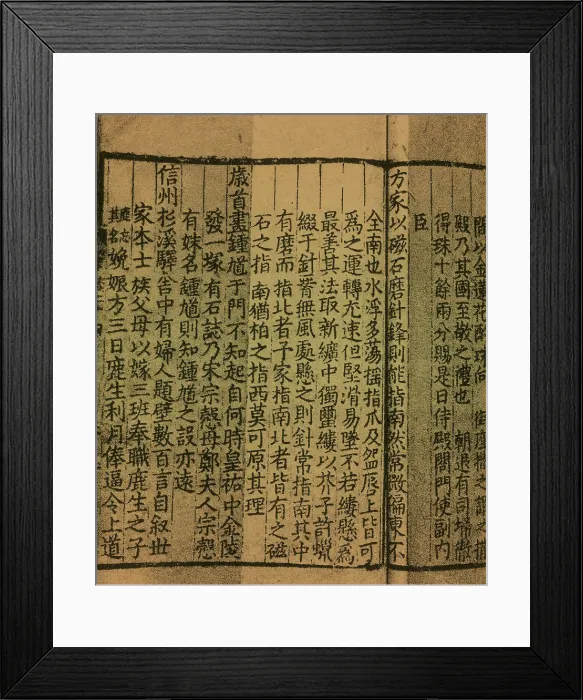 殿乃其國至敬之禮也 朝退有司掃徹
得珠十餘兩分賜是日侍殿閤門使副内
臣
方家以磁石磨針鋒則能指南然常微偏東不
全南也水浮多蕩揺指爪及盌唇上皆可
爲之運轉尤速但堅滑易墜不若縷懸爲
最善其法取新纊中獨蠒縷以芥子許蠟
綴于針𦝫無風處懸之則針常指南其中
有磨而指北者予家指南北者皆有之磁
石之指南猶柏之指西莫可原其理
歳首畫鍾馗于門不知起自何時皇祐中金陵
發一塚有石誌乃宋宗愨母鄭夫人宗愨
有妹名鍾馗則知鍾馗之設亦逺
信州杉溪驛舍中有婦人題壁數百言自叙世
家本士族父母以嫁三班奉職鹿生之子
鹿忘其名娩娠方三日鹿生利月俸逼令上道